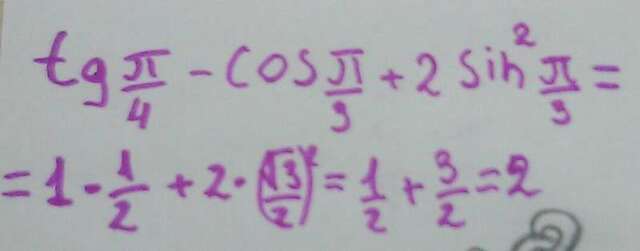 tg π/4 - cos π/3 + 2 sin² π/3 =
= 1 - 1/2 + 2·(√3/2)² = 1/2 + 3/2 = 2